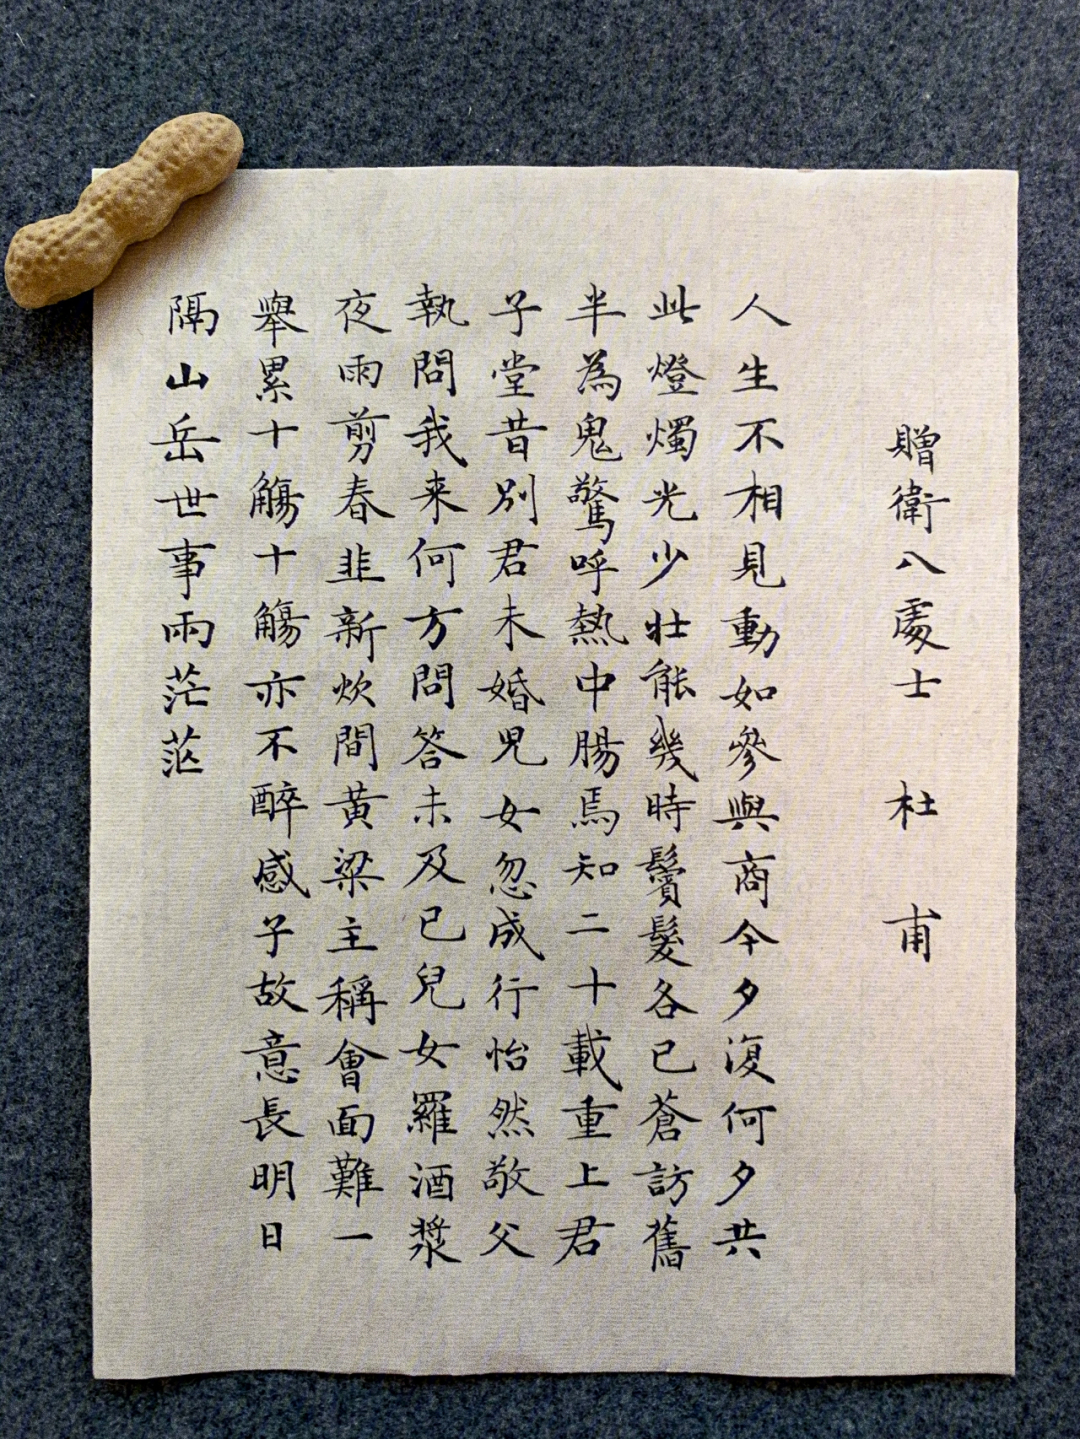 贈衛八處士 杜 甫
人生不相見動如參與商今夕復何夕共
此燈燭光少壯能幾時鬢髮各已蒼訪舊
半為鬼驚呼熱中腸焉知二十載重上君
子堂昔別君未婚児女忽成行怡然敬父
執問我来何方問答未及已兒女羅酒漿
夜雨剪春韭新炊間黃梁主稱會面難一
舉累十觴十觴亦不醉感子故意長明日
隔山岳世事兩茫茫